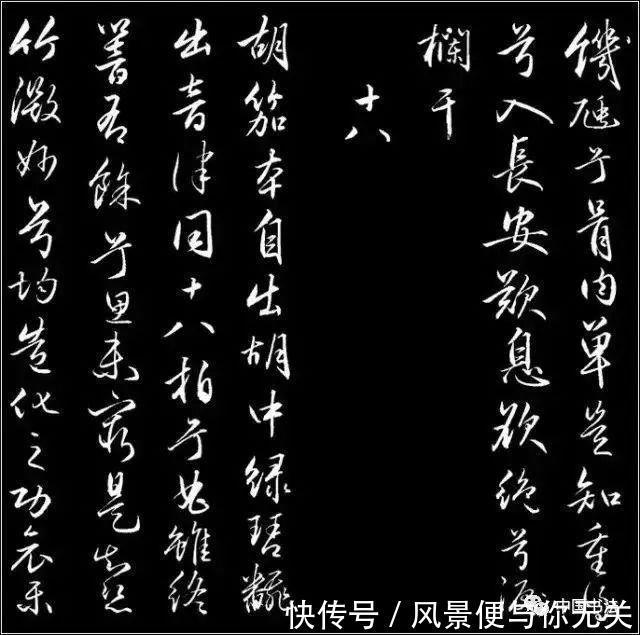 饑豗兮骨肉単豈知重得
兮入長安歎息欲絶兮淚
欄干
十八
胡笳本自出胡中緑琴翻
出音律同十八拍兮曲雖終
響有餘兮思未窮是知絲
竹微妙兮均造化之功哀樂
中国书法
快传号 / 风景便与你无关